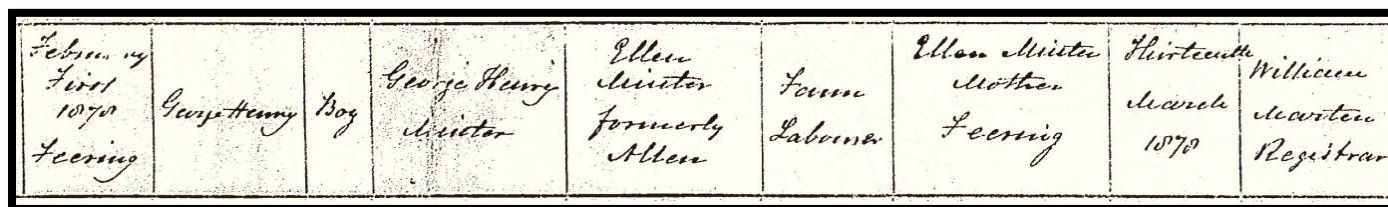 February
First
1878
Feering
George Henry
Boy
George Henry
Minter
Ellen
Minter
formerly
Allen
Farm
Labourer
Ellen Minter
Mother
Feering
Thirteenth
March
1878
William
Marten
Registrar